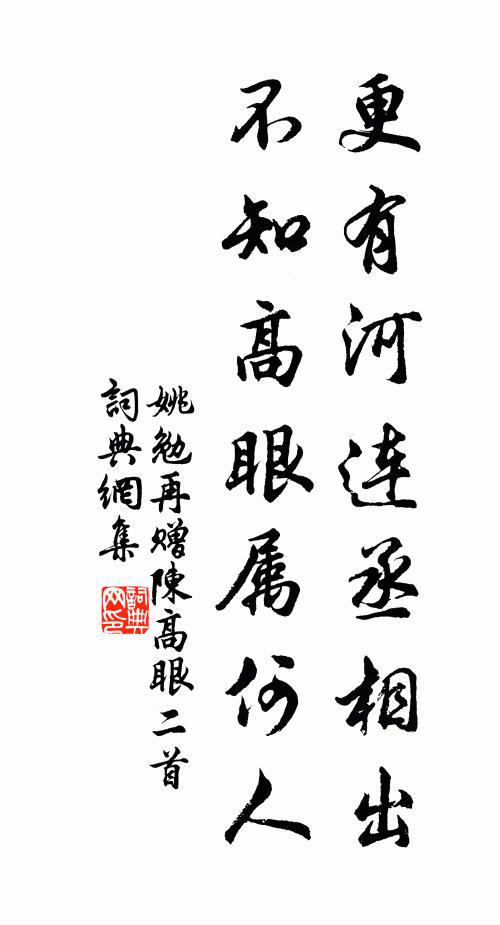 更有河连丞相出
不知高眼属何人
姚勉再赠陳高眼二首
詞典網集
詞典网印